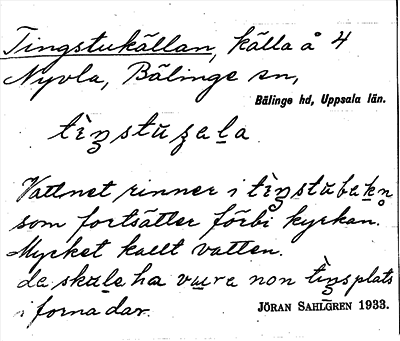 Tingstukällan, källa å 4
Nyvla, Bälinge sn,
Bälinge hd, Uppsala län.
Vattnet rinner i
som fortsätter förbi kyrkan.
Mycket kallt vatten.
da skale ha vara non tingsplats
i forna dar.
JÖRAN SAHLGREN 1933.